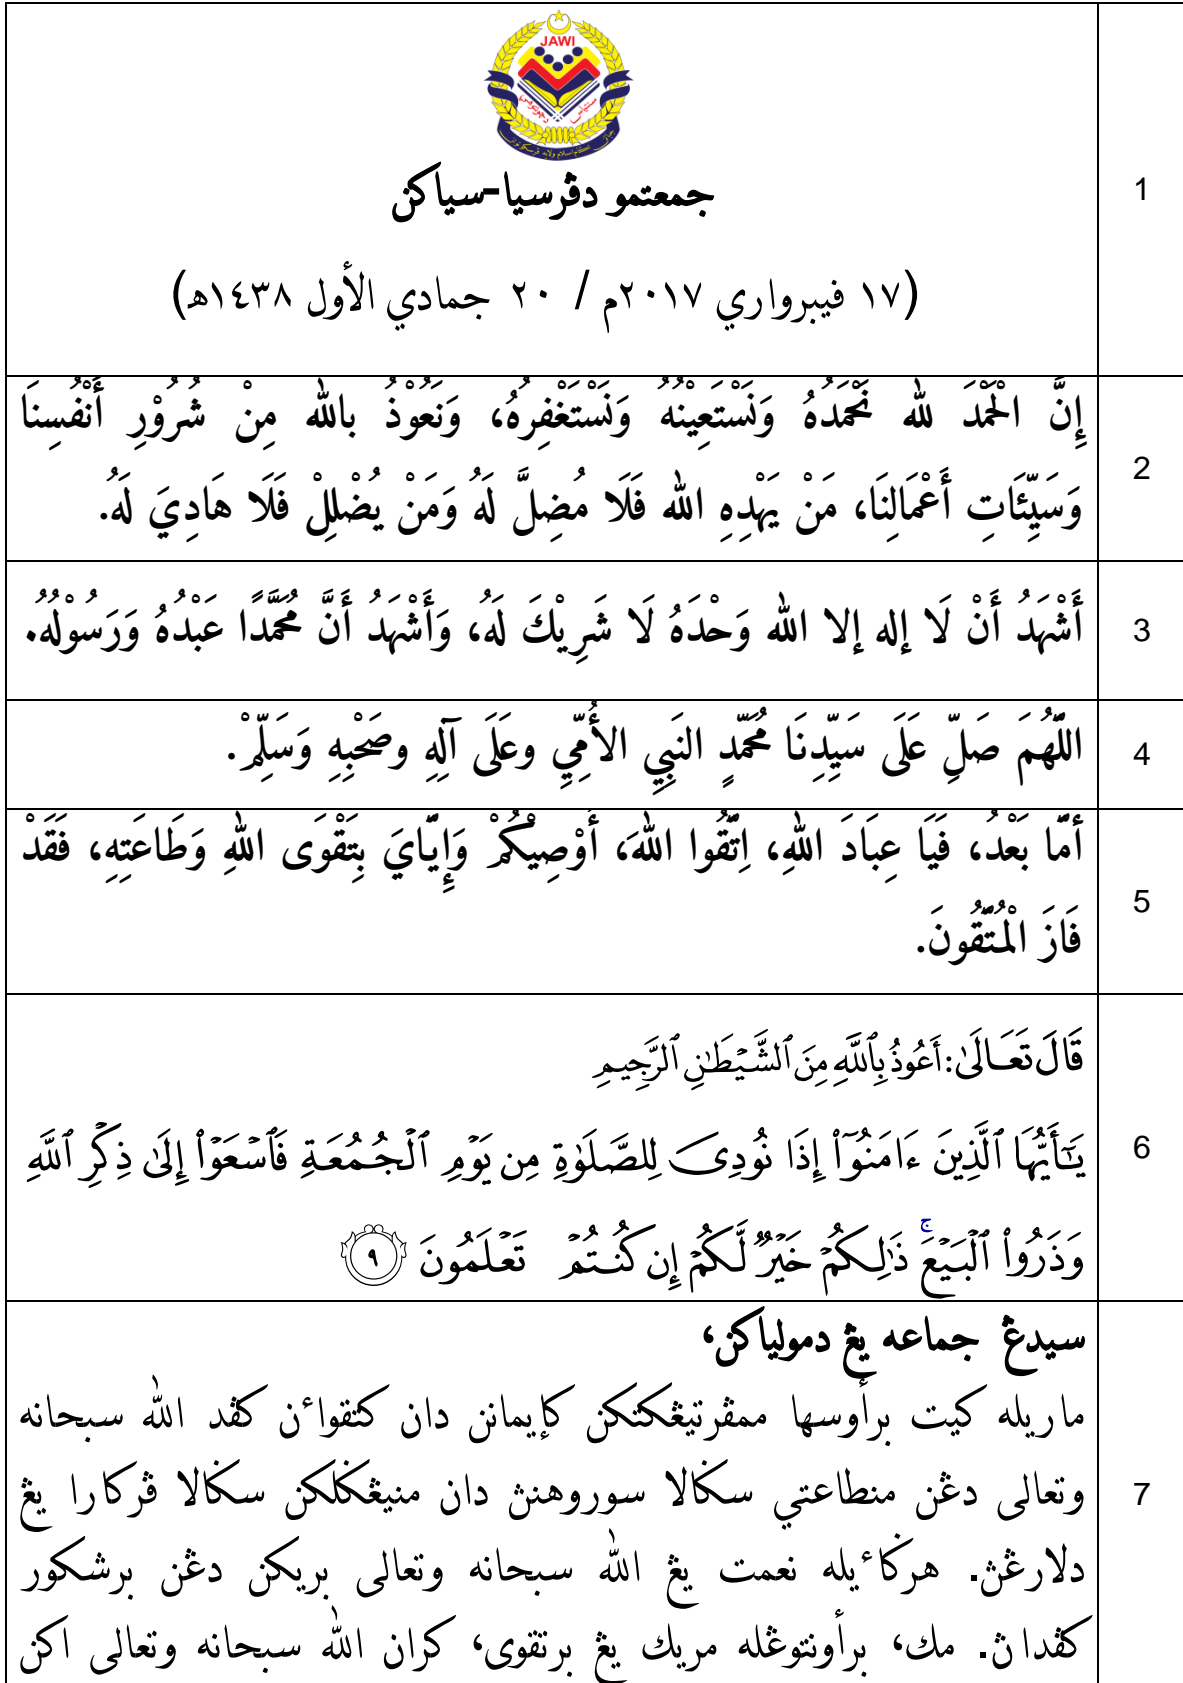 JAWI
جمعتمو دڤرسيا-سياکن
1
(١٧ فيبرواري ٢٠١٧م / ٢٠ جمادي الأول ١٤٣٨ھ)
إِنَّ الْحَمْدَ لله نَحْمَدُهُ وَنَسْتَعِيْنُهُ وَنَسْتَغْفِرُهُ، وَنَعُوْذُ بالله مِنْ شُرُوْرِ أَنْفُسِنَا
2
وَسَيِّئَاتِ أَعْمَالِنَا، مَنْ يَهْدِهِ الله فَلَا مُضِلَّ لَهُ وَمَنْ يُضْلِلْ فَلَا هَادِيَ لَهُ.
أَشْهَدُ أَنْ لَا إِله إِلا الله وَحْدَهُ لَا شَرِيْكَ لَهُ، وَأَشْهَدُ أَنَّ مُحَمَّدًا عَبْدُهُ وَرَسُوْلُهُ.
3
اللَّهُمَ صَلِّ عَلَى سَيِّدِنَا مُحَمّدٍ النَبِي الأُمِّيِ وعَلَى آلِهِ وصَحْبِهِ وَسَلِّمْ.
4
أمَّا بَعْدُ، فَيَا عِبَادَ اللهِ، اِتَّقُوا اللهَ، أُوْصِيْكُمْ وَإِيَّايَ بِتَقْوَى اللهِ وَطَاعَتِهِ، فَقَدْ
5
فَازَ الْمُتَّقُونَ.
قَالَ تَعَالَىٰ: أَعُوذُ بِٱللَّهِ مِنَ ٱلشَّيْطَٰنِ ٱلرَّجِيمِ
يَٰٓأَيُّهَا ٱلَّذِينَ ءَامَنُوٓا۟ إِذَا نُودِىَ لِلصَّلَوٰةِ مِن يَوْمِ ٱلْجُمُعَةِ فَٱسْعَوْا۟ إِلَىٰ ذِكْرِ ٱللَّهِ
6
وَذَرُوا۟ ٱلْبَيْعَ ۚ ذَٰلِكُمْ خَيْرٌ لَّكُمْ إِن كُنتُمْ تَعْلَمُونَ ٩
سيدڠ جماعه يڠ دمولياکن،
ماريله کيت برأوسها ممڤرتيڠکتکن کإيمانن دان کتقواءن کڤد الله سبحانه
وتعالى دڠن منطاعتي سݢالا سوروهنڽ دان منيڠݢلکن سݢالا ڤرکارا يڠ
7
دلارڠڽ. هرݢاءيله نعمت يڠ الله سبحانه وتعالى بريکن دڠن برشکور
کڤداڽ. مك، برأونتوڠله مريك يڠ برتقوى، کران الله سبحانه وتعالى اکن